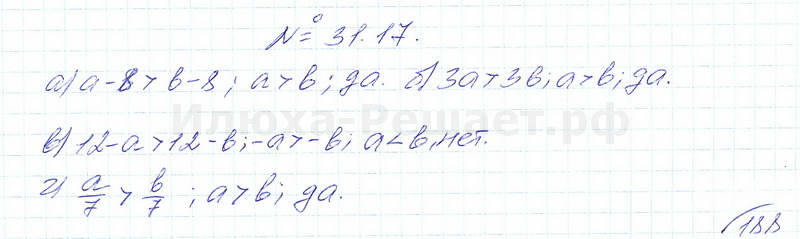 № 31.17.
а) a-8>b-8; a>b; да. б) 3a>3b; a>b; да.
Илюха-Решает.рф
в) 12-a>12-b; -a>-b; a<b, нет.
г) a/7 > b/7; a>b; да.
188